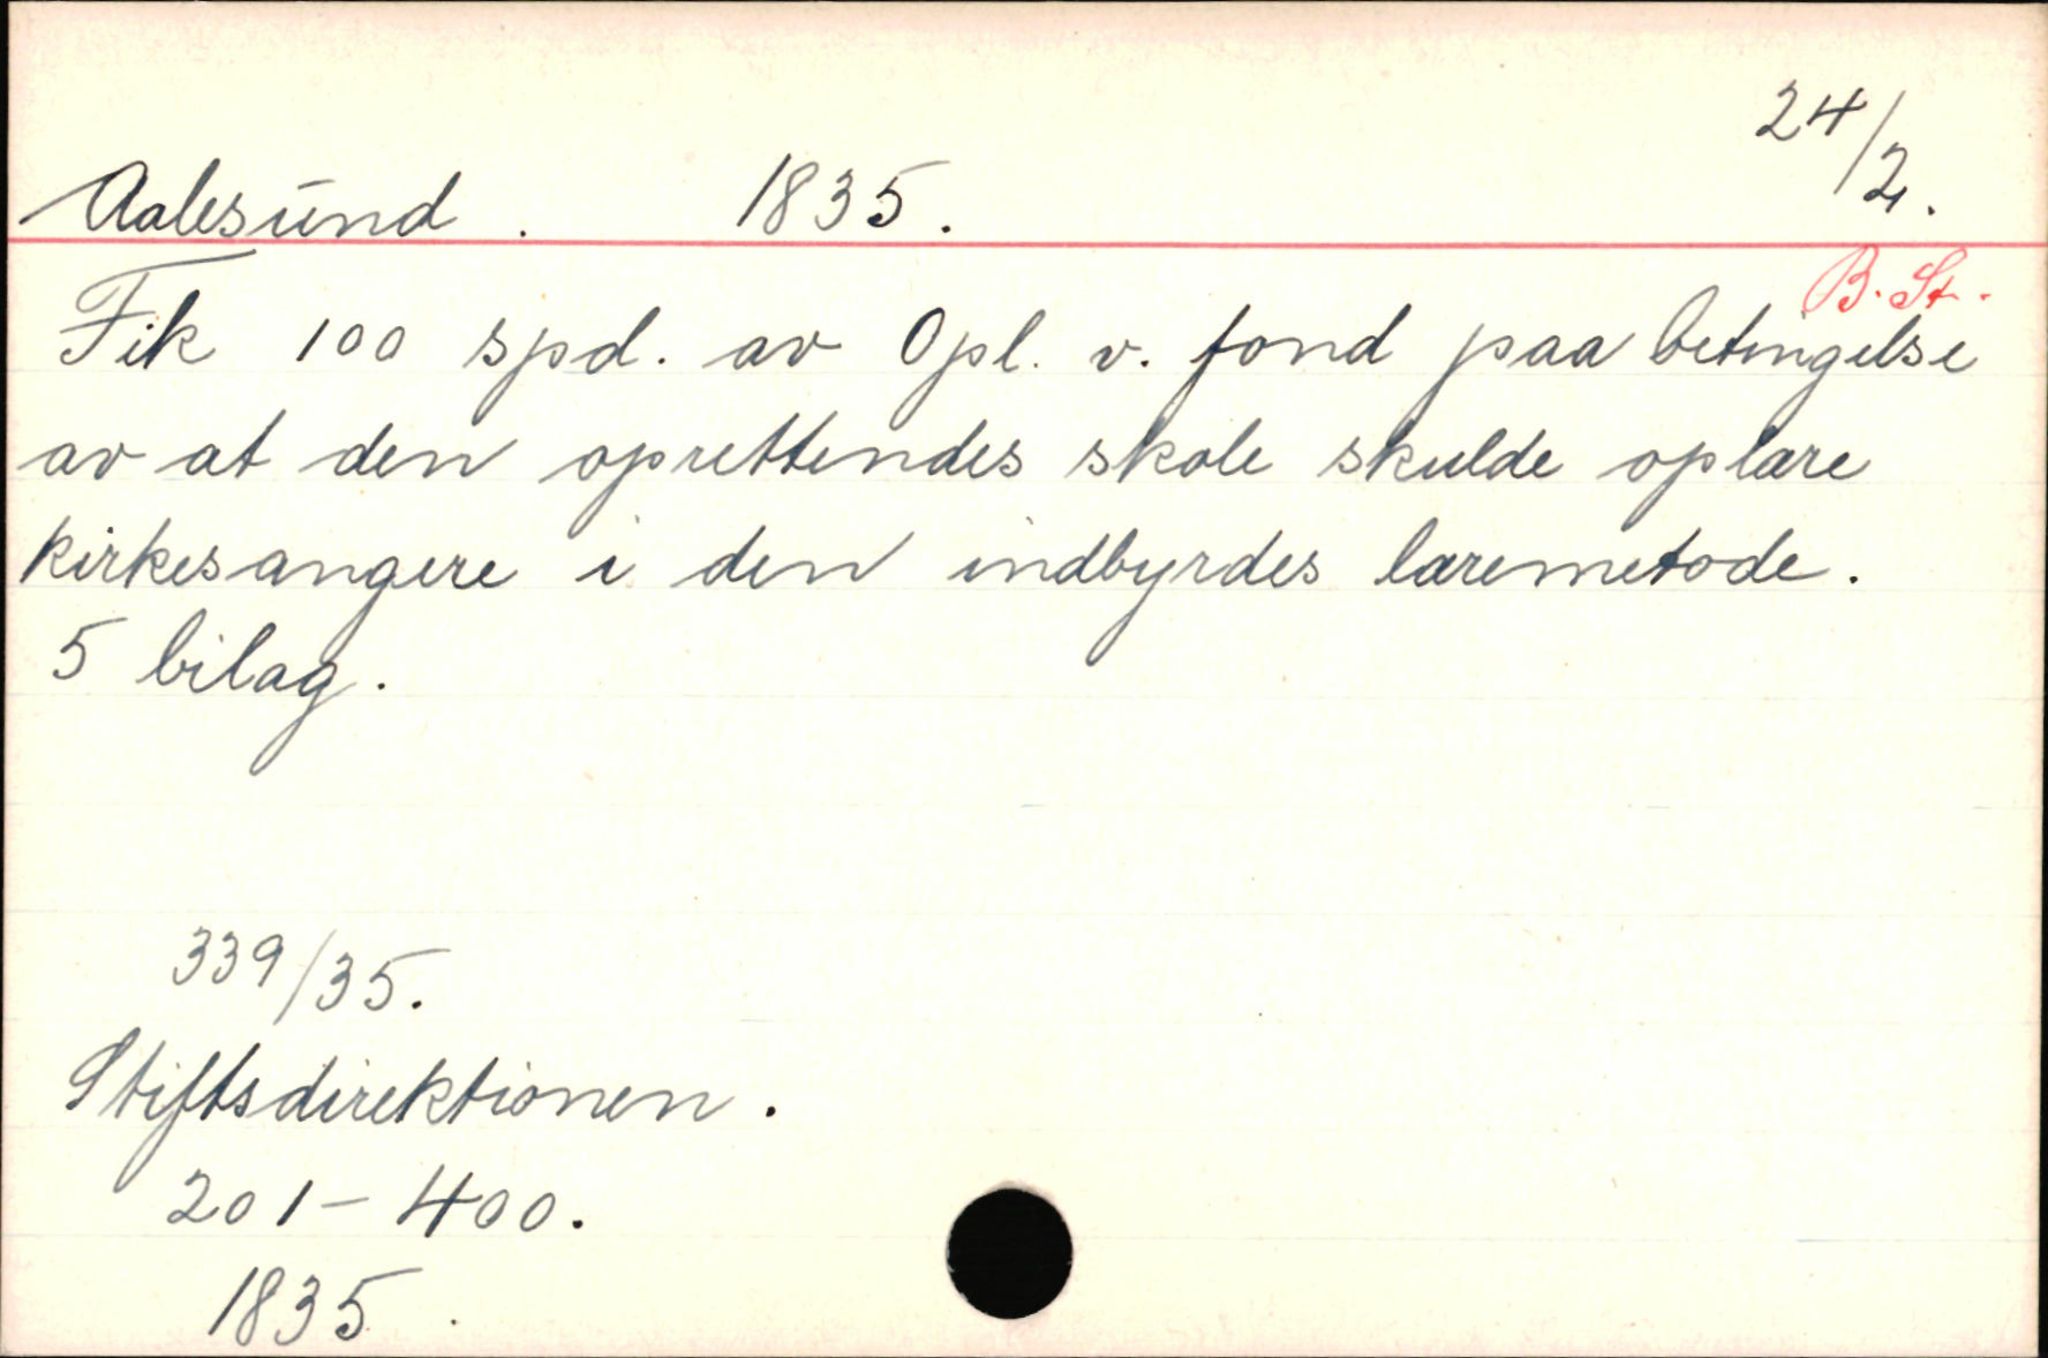 24/2.
Aalesund. 1835.
B. St.
Fik 100 spd. av Opl. v. fond paa betingelse
av at den oprettendes skole skulde oplære
kirkesangere i den indbyrdes læremetode.
5 bilag.
339/35.
Stiftsdirektionen.
201-400.
1835.